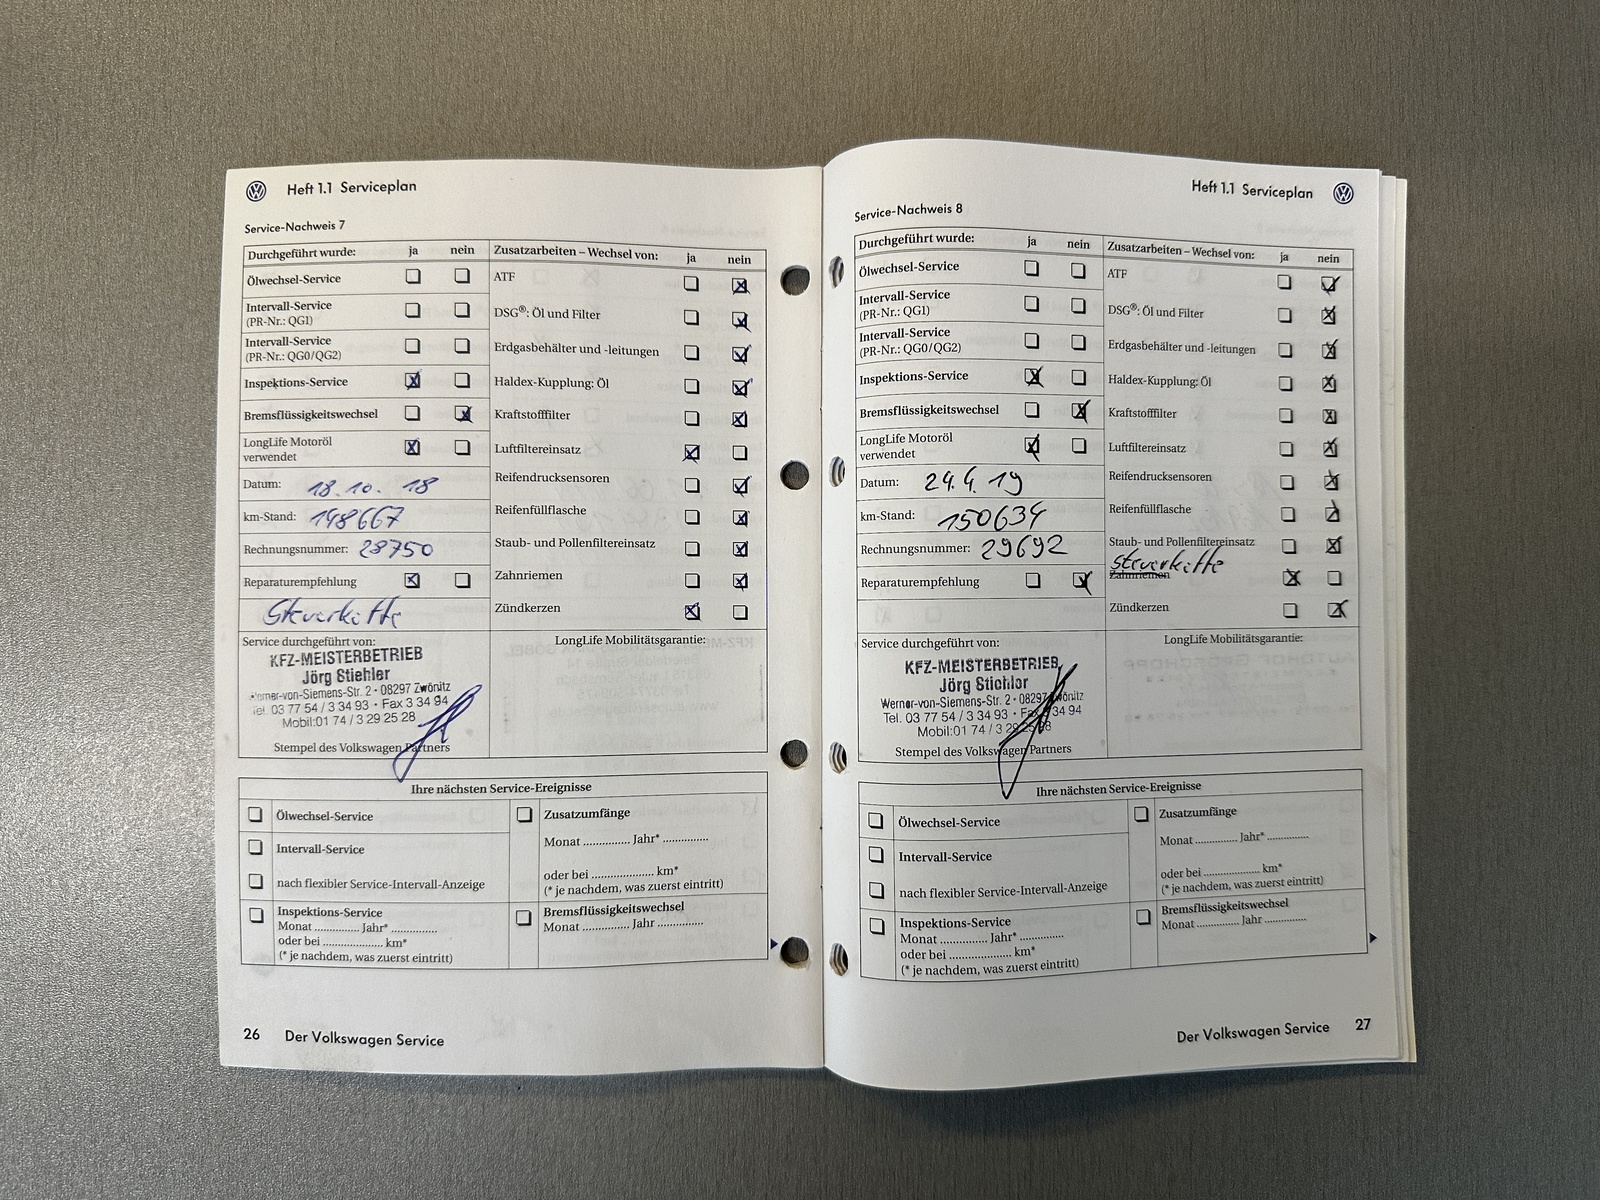 Heft 1.1 Serviceplan
Service-Nachweis 7
Durchgeführt wurde: ja nein
Ölwechsel-Service
Intervall-Service
(PR-Nr.: QG1)
Intervall-Service
(PR-Nr.: QG0/QG2)
Inspektions-Service
Bremsflüssigkeitswechsel
LongLife Motoröl
verwendet
Datum: 18.10. 18
km-Stand: 148667
Rechnungsnummer: 28750
Reparaturempfehlung
Steuerkette
Zusatzarbeiten – Wechsel von: ja nein
ATF
DSG®: Öl und Filter
Erdgasbehälter und -leitungen
Haldex-Kupplung: Öl
Kraftstofffilter
Luftfiltereinsatz
Reifendrucksensoren
Reifenfüllflasche
Staub- und Pollenfiltereinsatz
Zahnriemen
Zündkerzen
Service durchgeführt von:
KFZ-MEISTERBETRIEB
Jörg Stiehler
Werner-von-Siemens-Str. 2 · 08297 Zwönitz
Tel. 03 77 54 / 3 34 93 · Fax 3 34 94
Mobil:01 74 / 3 29 25 28
Stempel des Volkswagen Partners
LongLife Mobilitätsgarantie:
Ihre nächsten Service-Ereignisse
Ölwechsel-Service
Intervall-Service
nach flexibler Service-Intervall-Anzeige
Inspektions-Service
Monat .............. Jahr* ..............
oder bei ................... km*
(* je nachdem, was zuerst eintritt)
Zusatzumfänge
Monat .............. Jahr* ..............
oder bei ................... km*
(* je nachdem, was zuerst eintritt)
Bremsflüssigkeitswechsel
Monat .............. Jahr ..............
26 Der Volkswagen Service
Heft 1.1 Serviceplan
Service-Nachweis 8
Durchgeführt wurde: ja nein
Ölwechsel-Service
Intervall-Service
(PR-Nr.: QG1)
Intervall-Service
(PR-Nr.: QG0/QG2)
Inspektions-Service
Bremsflüssigkeitswechsel
LongLife Motoröl
verwendet
Datum: 24.4. 19
km-Stand: 150634
Rechnungsnummer: 29692
Reparaturempfehlung
Zusatzarbeiten – Wechsel von: ja nein
ATF
DSG®: Öl und Filter
Erdgasbehälter und -leitungen
Haldex-Kupplung: Öl
Kraftstofffilter
Luftfiltereinsatz
Reifendrucksensoren
Reifenfüllflasche
Staub- und Pollenfiltereinsatz
Steuerkette
Zahnriemen
Zündkerzen
Service durchgeführt von:
KFZ-MEISTERBETRIEB
Jörg Stiehler
Werner-von-Siemens-Str. 2 · 08297 Zwönitz
Tel. 03 77 54 / 3 34 93 · Fax 3 34 94
Mobil:01 74 / 3 29 25 28
Stempel des Volkswagen Partners
LongLife Mobilitätsgarantie:
Ihre nächsten Service-Ereignisse
Ölwechsel-Service
Intervall-Service
nach flexibler Service-Intervall-Anzeige
Inspektions-Service
Monat .............. Jahr* ..............
oder bei ................... km*
(* je nachdem, was zuerst eintritt)
Zusatzumfänge
Monat .............. Jahr* ..............
oder bei ................... km*
(* je nachdem, was zuerst eintritt)
Bremsflüssigkeitswechsel
Monat .............. Jahr ..............
Der Volkswagen Service 27